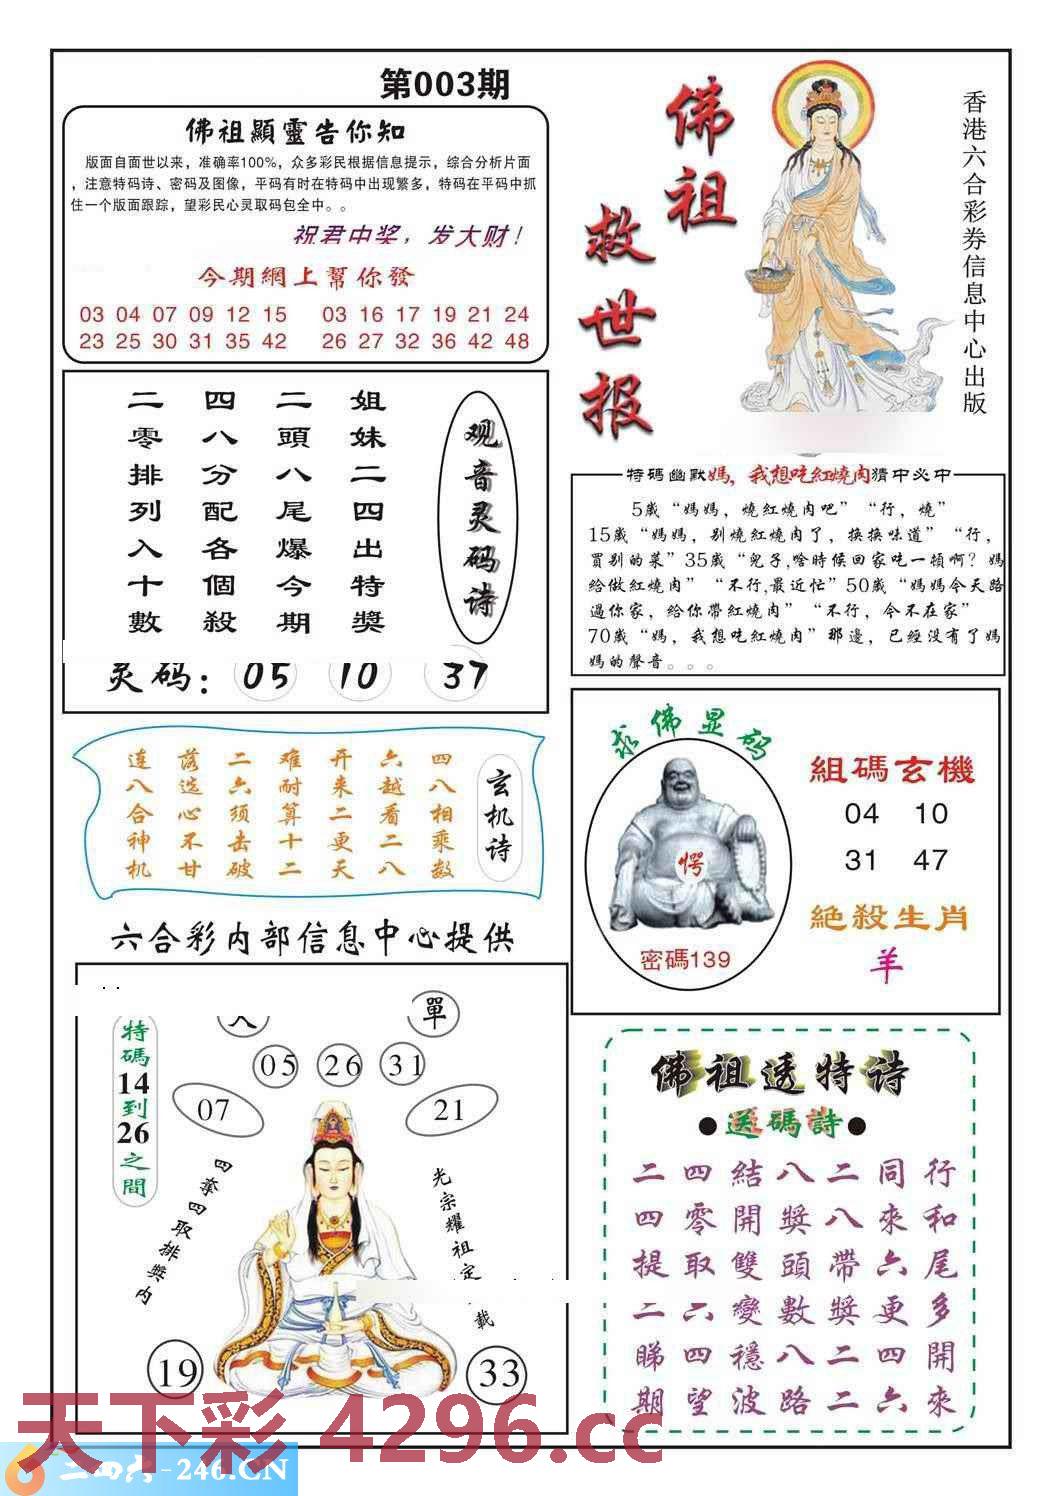 第003期
佛祖顯靈告你知
版面自面世以来，准确率100%，众多彩民根据信息提示，综合分析片面
，注意特码诗、密码及图像，平码有时在特码中出现繁多，特码在平码中抓
住一个版面跟踪，望彩民心灵取码包全中。。
祝君中奖，发大财！
今期網上幫你發
03 04 07 09 12 15 03 16 17 19 21 24
23 25 30 31 35 42 26 27 32 36 42 48
佛祖
救世报
香港六合彩券信息中心出版
观音灵码诗
姐妹二四出特獎
二頭八尾爆今期
四八分配各個殺
二零排列入十數
灵码：05 10 37
特碼幽默媽，我想吃紅燒肉猜中必中
5歲“媽媽，燒紅燒肉吧”“行，燒”
15歲“媽媽，别燒紅燒肉了，换换味道”“行，
買别的菜”35歲“兒子,啥時候回家吃一頓啊？媽
给做紅燒肉”“不行,最近忙”50歲“媽媽今天路
過你家，给你帶紅燒肉”“不行，今不在家”
70歲“媽，我想吃紅燒肉”那邊，已經没有了媽
媽的聲音。。。
玄机诗
四八相乘数
六越看二八
开来二更天
难耐算十二
二六须击破
落选心不甘
连八合神机
求佛显码
愕
密碼139
組碼玄機
04 10
31 47
絕殺生肖
羊
六合彩内部信息中心提供
單
特碼14到26之間
05 26 31
07 21
四奪四取排獎内
光宗耀祖定
载
19 33
佛祖透特诗
●送碼詩●
行和尾多開來
同來六更四六
二八帶獎二二
八獎頭數八路
結開雙變穩波
四零取六四望
二四提二睇期
天下彩 4296.cc
二四六-246.CN